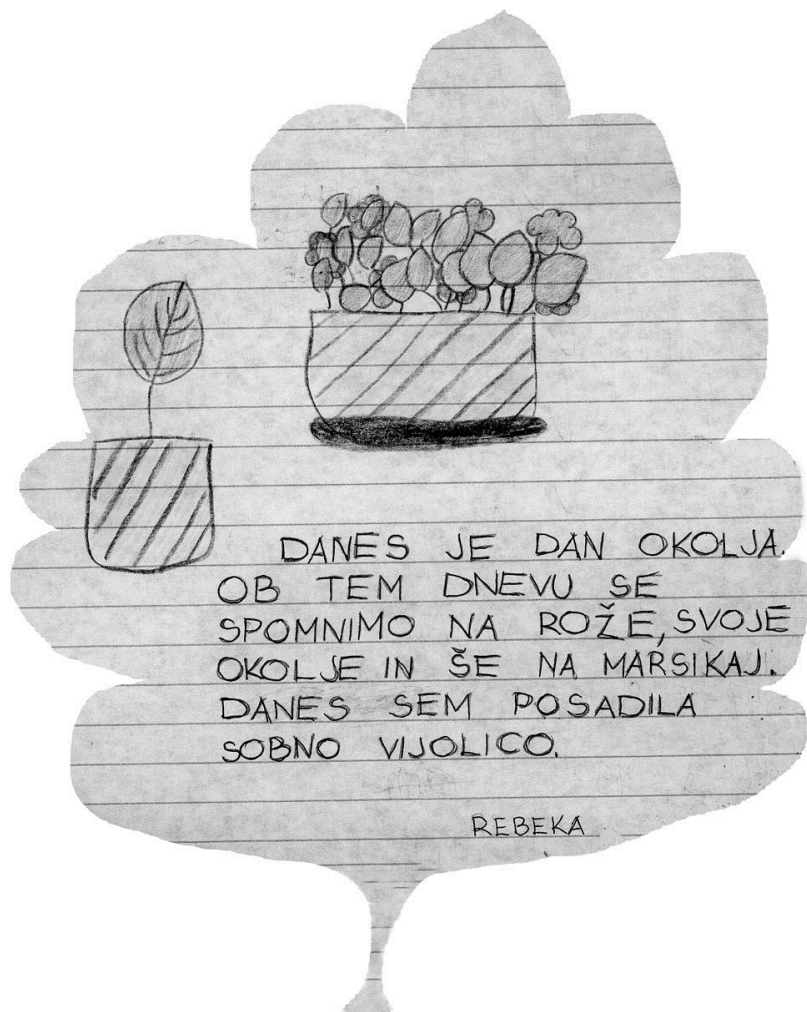 DANES JE DAN OKOLJA.
OB TEM DNEVU SE
SPOMNIMO NA ROŽE, SVOJE
OKOLJE IN ŠE NA MARSIKAJ.
DANES SEM POSADILA
SOBNO VIJOLICO.
REBEKA